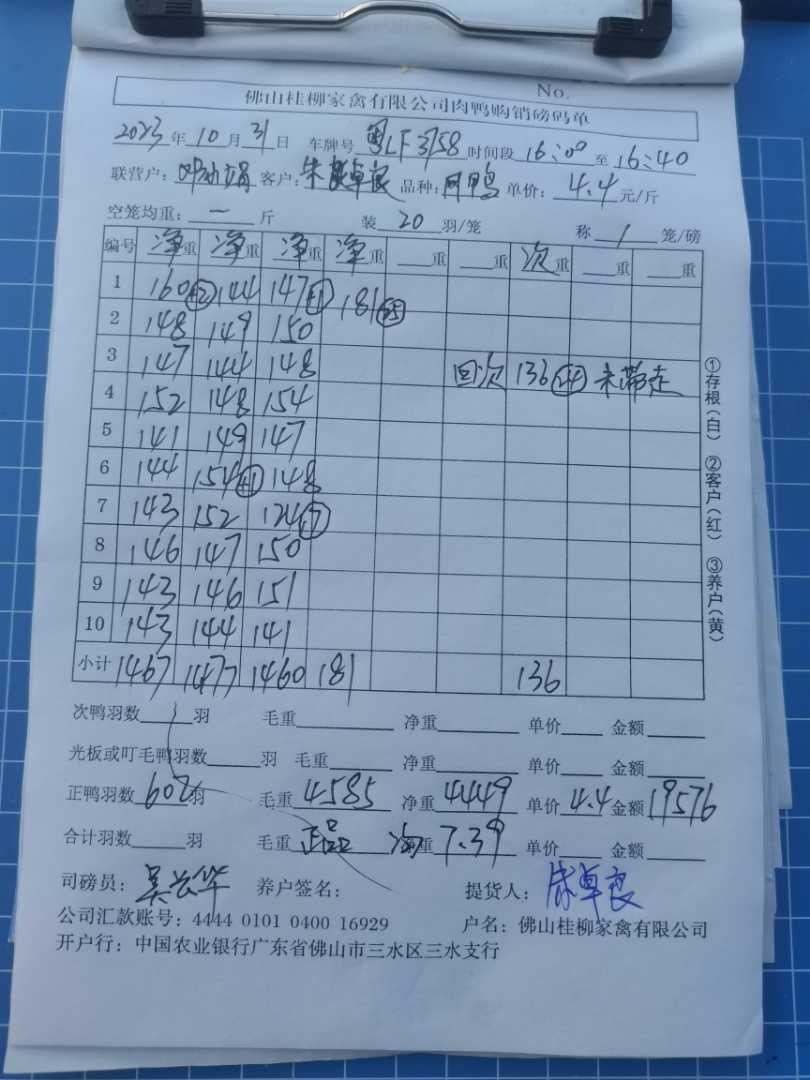 No.
佛山桂柳家禽有限公司肉鸭购销磅码单
2023年10月31日 车牌号 粤LF3758 时间段 16:00 至 16:40
联营户: 客户: 朱卓良 品种: 肉鸭 单价: 4.4 元/斤
空笼均重: 一 斤 装 20 羽/笼 称 1 笼/磅
编号 净重 净重 净重 净重 重 重 次重 重 重
1 160 +2 144 147 +1 181 25
2 148 149 150
3 147 144 148 回次 136 24 未带走
4 152 148 154
5 141 149 147
6 144 154 +1 148
7 143 152 124 17
8 146 147 150
9 143 146 151
10 143 144 141
小计 1467 1477 1460 181 136
次鸭羽数 羽 毛重 净重 单价 金额
光板或叮毛鸭羽数 羽 毛重 净重 单价 金额
正鸭羽数 602 羽 毛重 4585 净重 4449 单价 4.4 金额 19576
合计羽数 羽 毛重 正品 净重 7.39 单价 金额
司磅员: 吴云华 养户签名: 提货人: 卓良
公司汇款账号: 4444 0101 0400 16929 户名: 佛山桂柳家禽有限公司
开户行: 中国农业银行广东省佛山市三水区三水支行
①存根(白) ②客户(红) ③养户(黄)